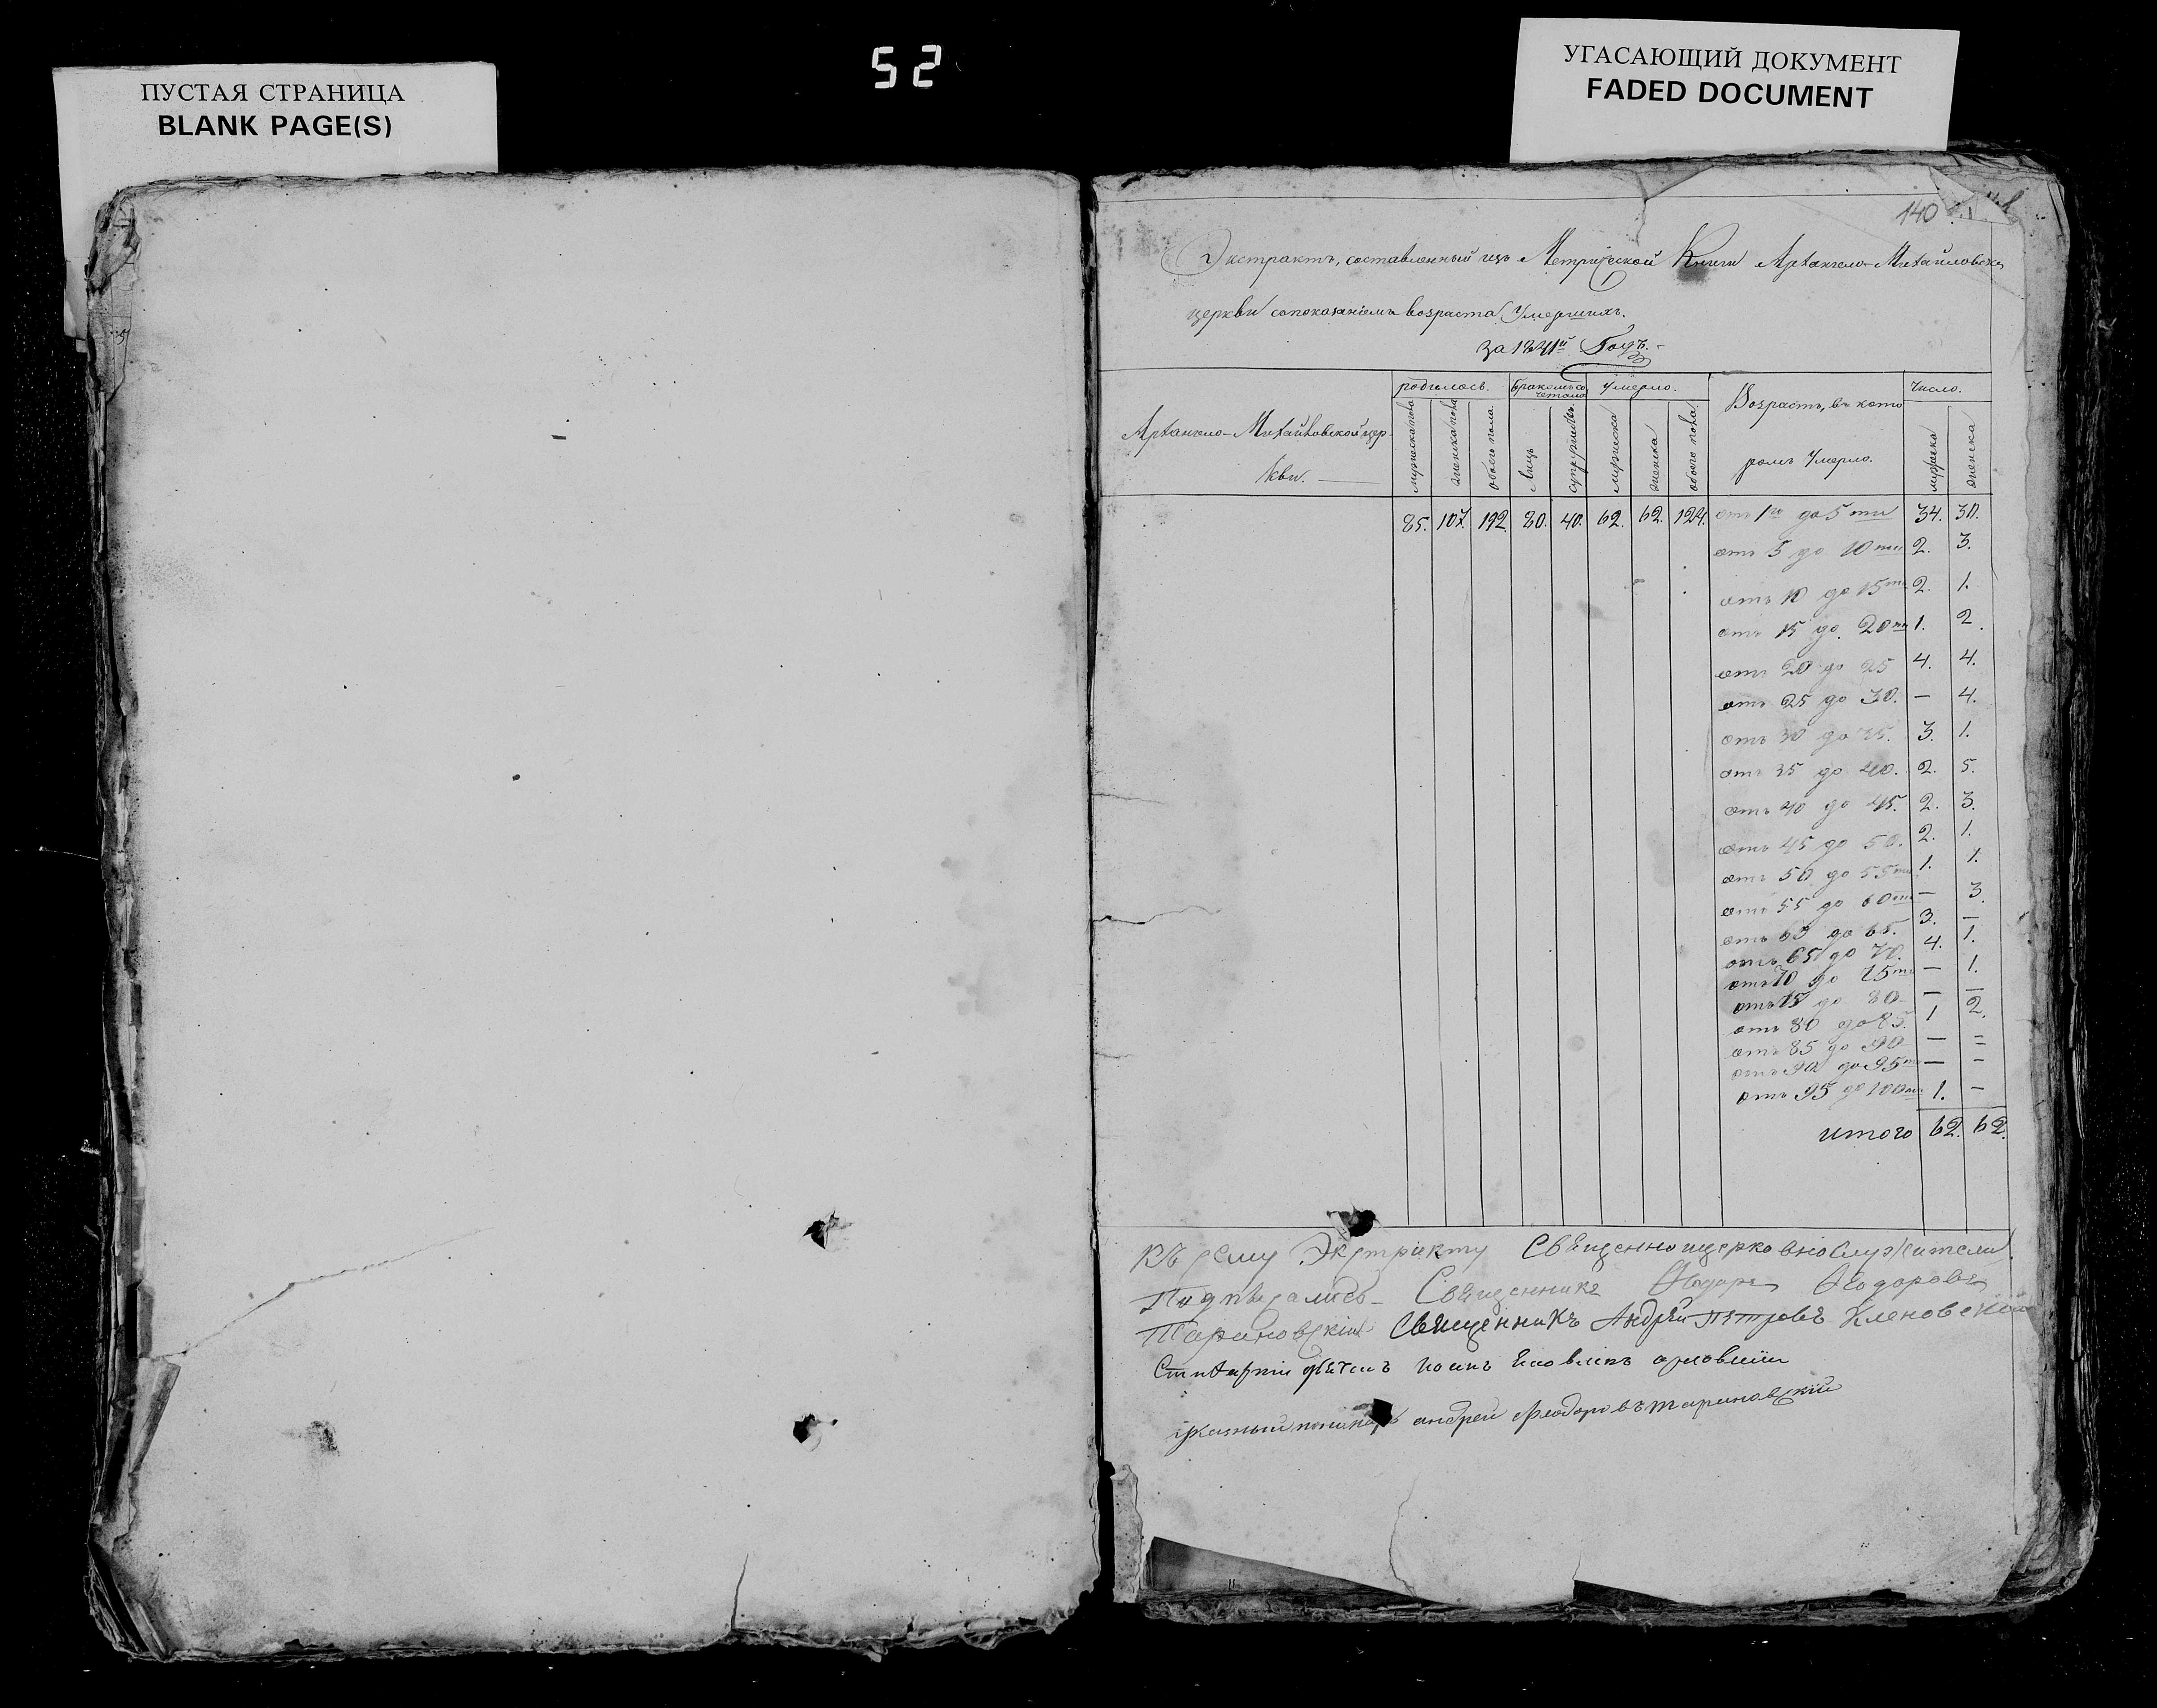 ПУСТАЯ СТРАНИЦА
BLANK PAGE(S)
52
УГАСАЮЩИЙ ДОКУМЕНТ
FADED DOCUMENT
140
Экстрактъ, составленный изъ Метрической Книги Архангело-Михайловской
церкви сопоказаніемъ возраста Умершихъ.
За 1841й Годъ.
родилось. бракомъ со четано Умерло. Возрастъ, въ кото Число.
Архангело-Михайловской цер
мужеска пола женска пола обоего пола. Лицъ супружествъ мужеска женска обоего пола. мужеска женска
кви. ромъ Умерло.
85. 107. 192 80. 40. 62. 62. 124. отъ 1го до 5ти 34. 30.
отъ 5 до 10ти 2. 3.
отъ 10 до 15ти 2. 1.
отъ 15 до 20ти 1. 2.
отъ 20 до 25 4. 4.
отъ 25 до 30. — 4.
отъ 30 до 35. 3. 1.
отъ 35 до 40. 2. 5.
отъ 40 до 45. 2. 3.
отъ 45 до 50. 2. 1.
отъ 50 до 55ти 1. 1.
отъ 55 до 60ти — 3.
отъ 60 до 65. 3. —
отъ 65 до 70. 4. 1.
отъ 70 до 75ти — 1.
отъ 75 до 80 — —
отъ 80 до 85. 1 2.
отъ 85 до 90 — =
отъ 90 до 95ти — =
отъ 95 до 100ти 1. —
итого 62. 62.
Къ сему Экстракту Священноцерковнослужители
Подписались Священникъ Федоровъ
Тариновскій Священникъ Андрей Петровъ Кленовскій
Иоанъ орловскій
андрей Феодоровъ Тариновскій